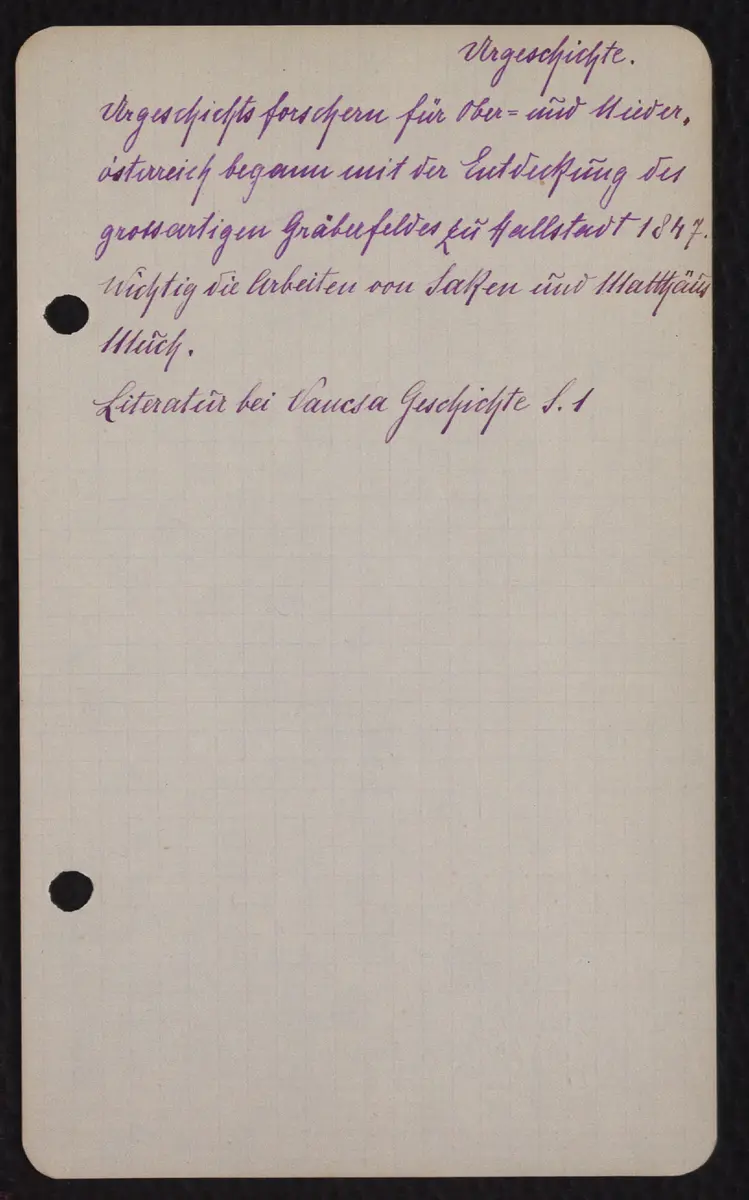 Urgeschichte.
Urgeschichtsforschern für Ober= und Nieder,
österreich begann mit der Entdeckung des
grossartigen Gräberfeldes zu Hallstadt 1847.
Wichtig die Arbeiten von Saken und Matthäus
Much.
Literatur bei Vancsa Geschichte S. 1